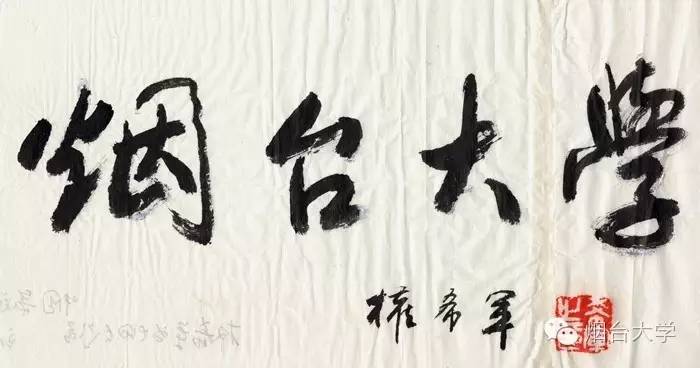 烟台大學
權希军
烟台大学